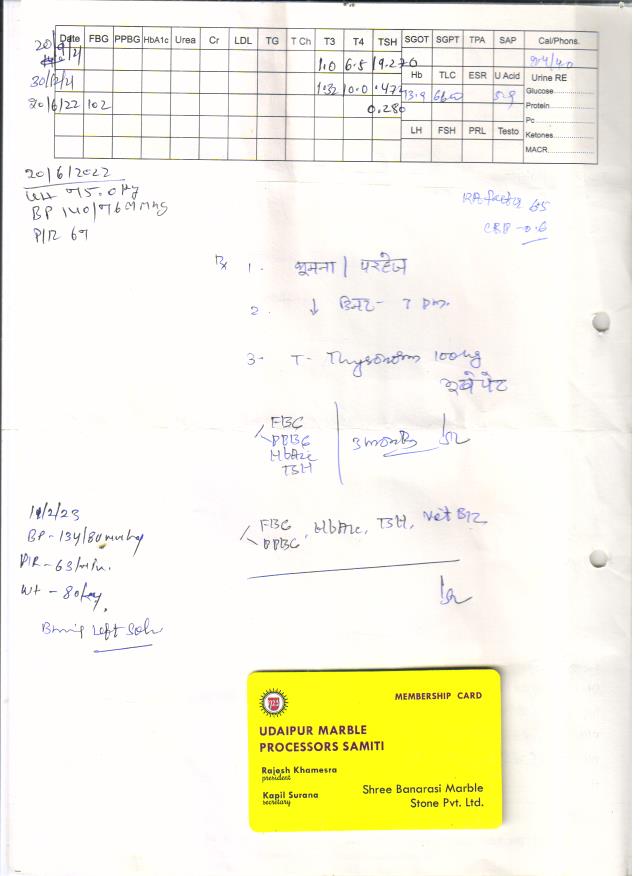 Date FBG PPBG HbA1c Urea Cr LDL TG T Ch T3 T4 TSH SGOT SGPT TPA SAP Cal/Phons.
1.0 6.5 19.270 9.4/4.0
Hb TLC ESR U Acid Urine RE
30/2/21 1.32 10.0 .472 13.9 6600 5.9 Glucose
20/6/22 102 0.280 Protein
Pc
LH FSH PRL Testo Ketones
MACR
20/6/2022
Wt 75.0 Kg
BP 140/76 mmHg
P/R 67
RA factor 65
CRP-0.6
Rx 1. घूमना / परहेज
2. ↓ डिनर - 7 pm.
3- T- Thyronorm 100mg
भूखे पेट
FBG
PPBG
HbA1c
TSH
3 months
11/2/23
BP - 134/80 mmHg
P/R - 63/min.
Wt - 80 kg.
Left Sole
FBG, HbA1c, TSH, Vit B12
PPBG
MEMBERSHIP CARD
UDAIPUR MARBLE
PROCESSORS SAMITI
Rajesh Khamesra
president
Kapil Surana
secretary
Shree Banarasi Marble
Stone Pvt. Ltd.